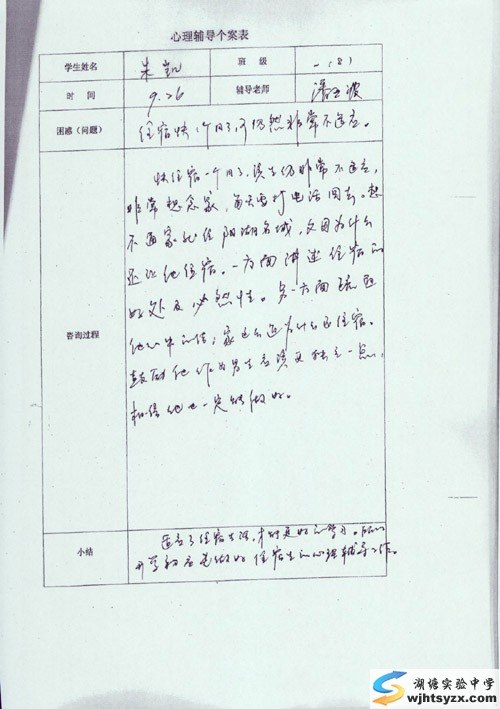 心理辅导个案表
学生姓名 朱凯 班 级 一（8）
时 间 9.26 辅导老师 潘 波
困惑（问题） 住宿快一个月了，可仍然非常不适应。
咨询过程
快住宿一个月了，该生仍非常不适应，
非常想念家，每天需打电话回去。想
不通家就住阳湖名城，父母为什么
还让他住宿。一方面讲述住宿的
好处及必然性。另一方面疏通
他心中的结：家近为什么还住宿。
鼓励他作为男生应该更独立一点，
相信他也一定能做好。
小结
适应了住宿生活，才能更好的学习。所以
开学初应先做好住宿生的心理辅导工作。
湖塘实验中学
wjhtsyzx.com